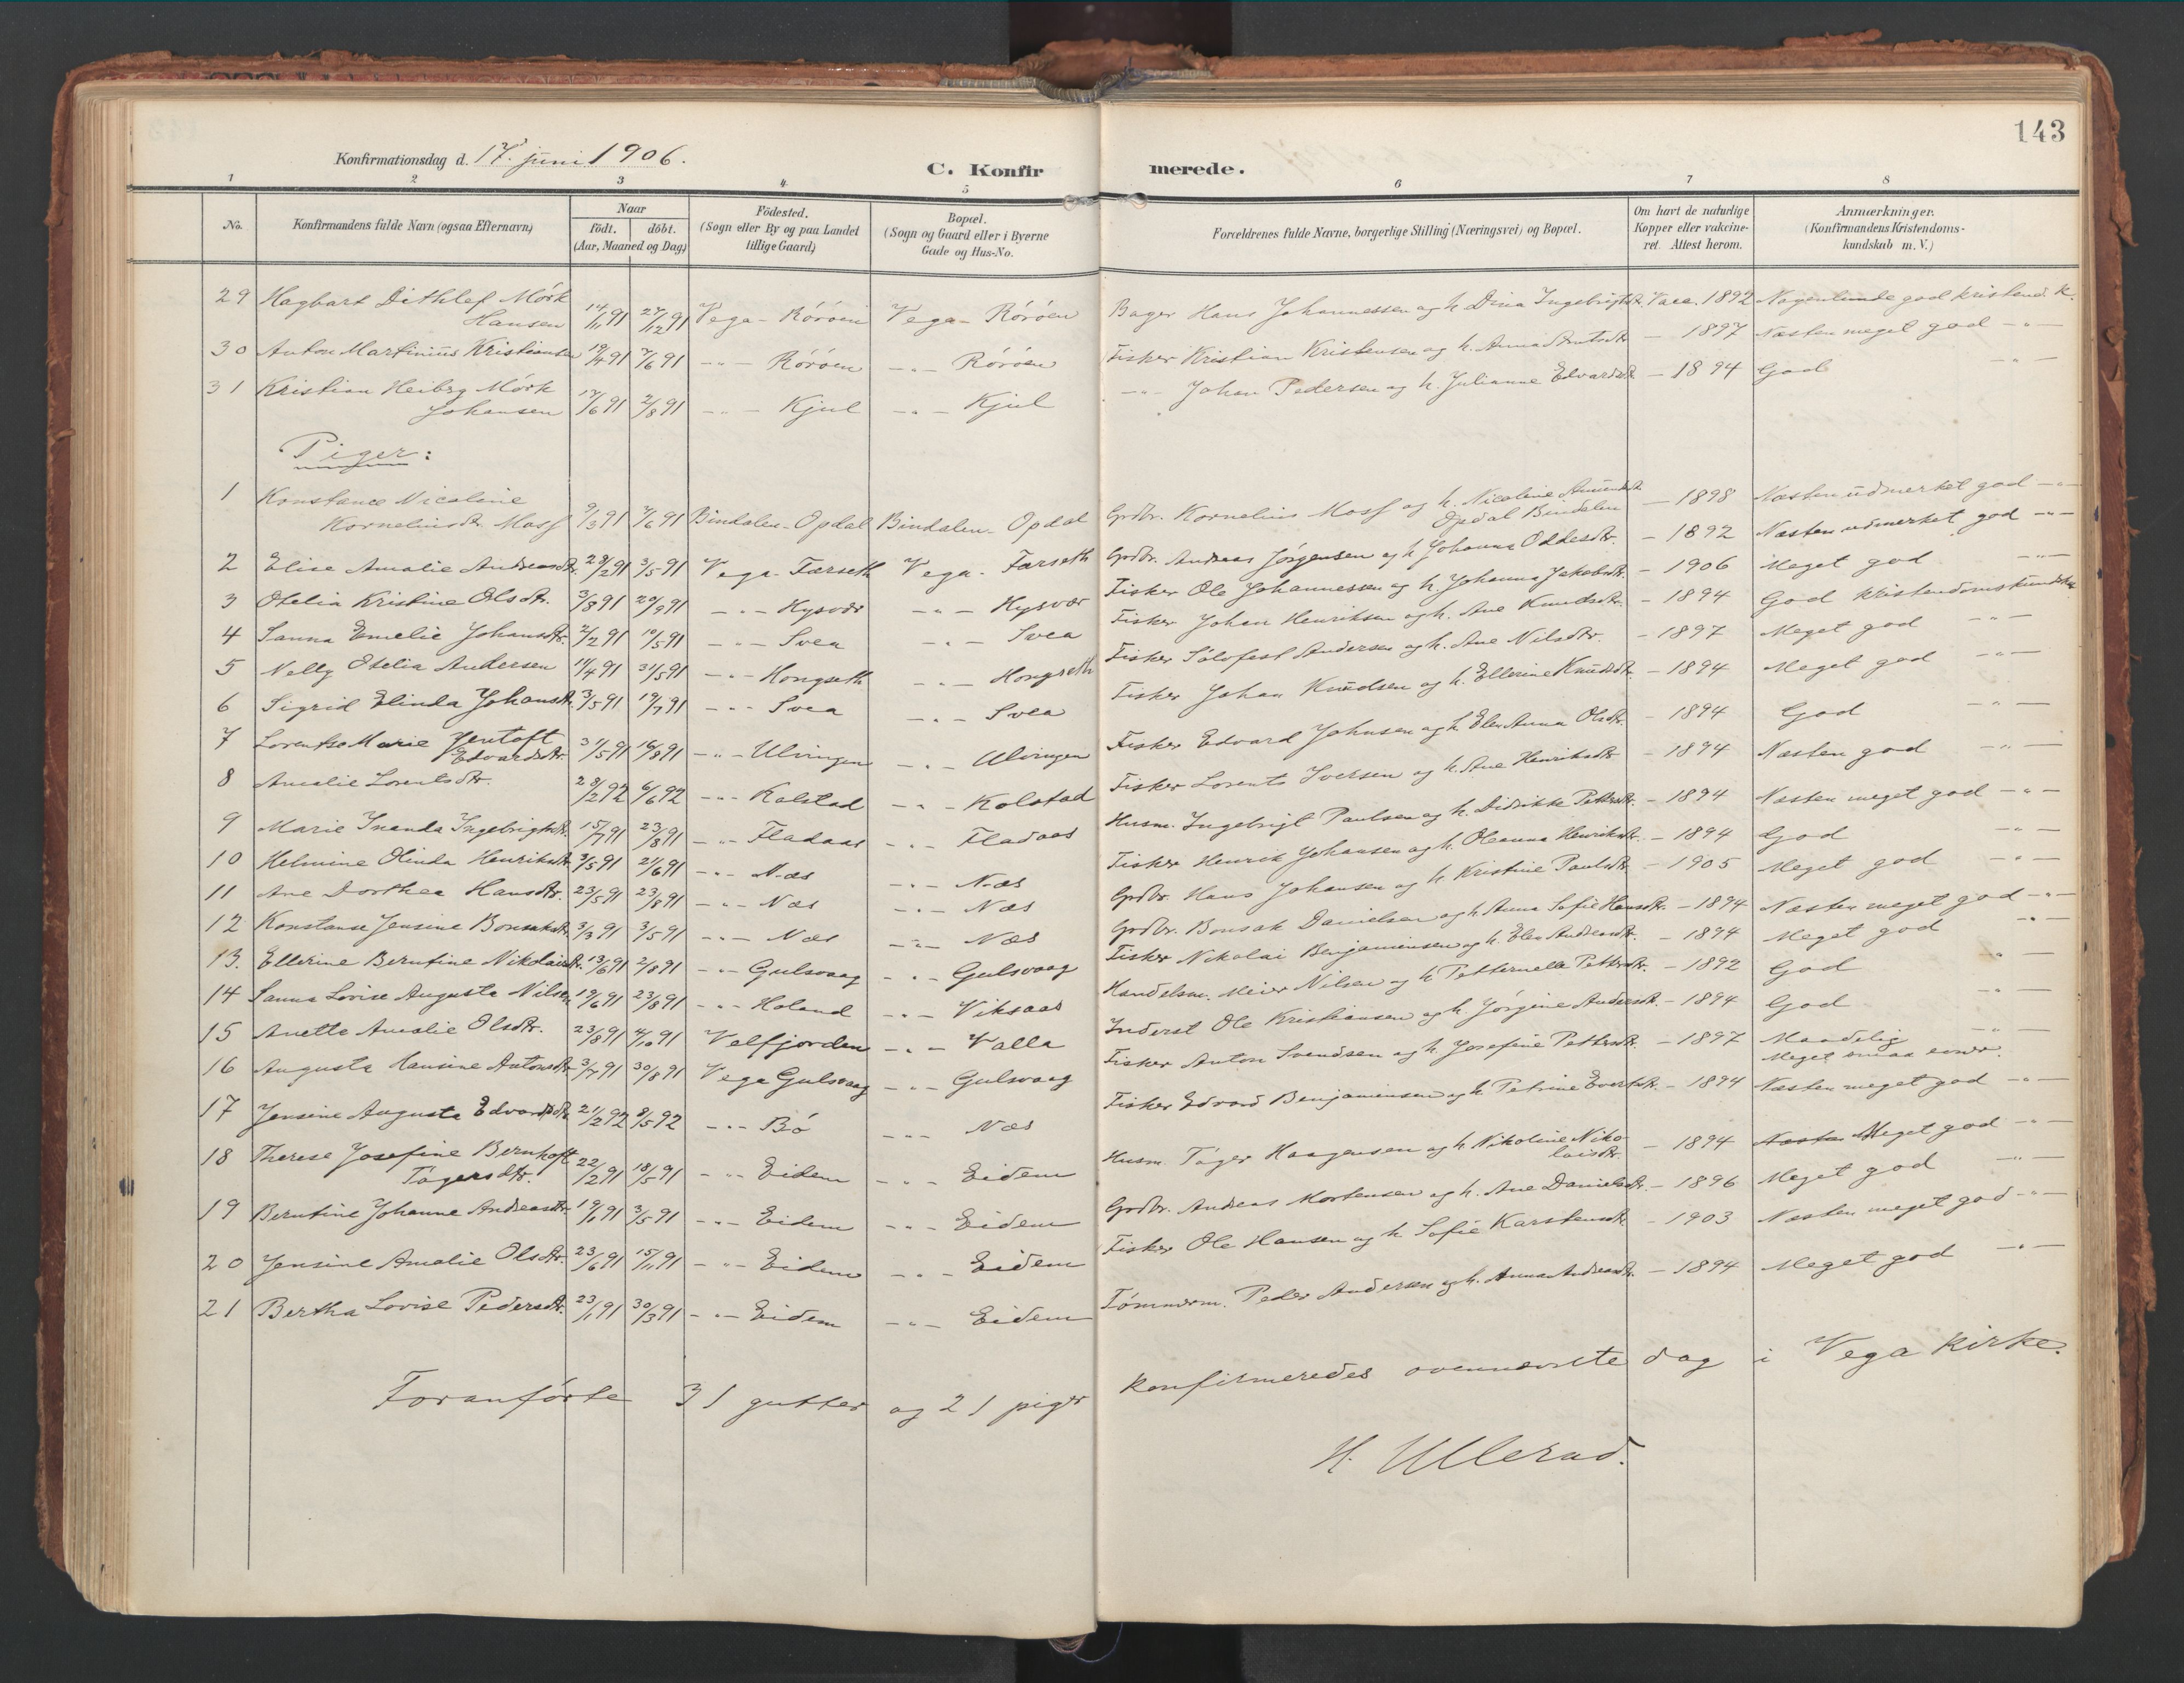 143
Konfirmationsdag d. 17. juni 1906.
C. Konfirmerede.
1 2 3 4 5 6 7 8
No. Konfirmandens fulde Navn (ogsaa Efternavn) Naar födt. döbt. (Aar, Maaned og Dag) Födested. (Sogn eller By og paa Landet tillige Gaard) Bopæl. (Sogn og Gaard eller i Byerne Gade og Hus-No. Forældrenes fulde Navne, borgerlige Stilling (Næringsvei) og Bopæl. Om havt de naturlige Kopper eller vakcineret. Attest herom. Anmærkninger. (Konfirmandens Kristendomskundskab m. V.)
29 Hagbart Dithlef Mörk Hansen 14/11 91 27/12 91 Vega - Röröen Vega - Röröen Bager Hans Johannessen og h. Dina Ingebrigtsdtr. Vacc. 1892 Nogenlunde god kristend. k.
30 Anton Martinius Kristiansen 19/4 91 7/6 91 -"- Röröen -"- Röröen Fisker Kristian Kristensen og h. Anna Arntsdtr - 1897 Næsten meget god -"-
31 Kristian Heiberg Mörk Johansen 17/6 91 2/8 91 -"- Kjul -"- Kjul -"- Johan Pedersen og h. Julianne Edvardsdtr - 1894 God -"-
Piger:
1 Konstance Nicoline Korneliusdtr. Moss 9/3 91 7/6 91 Bindalen - Opdal Bindalen - Opdal Grdbr. Kornelius Moss og h. Nicoline Opdal Bindalen - 1898 Næsten udmerket god -"-
2 Elise Amalie Andreasdtr. 28/2 91 3/5 91 Vega - Færseth Vega - Færseth Grdbr. Andreas Jørgensen og h. Johanna Oddesdtr. - 1892 Næsten udmerket god -"-
3 Otelia Kristine Olsdtr. 3/8 91 20/9 91 -"- Hysvær -"- Hysvær Fisker Ole Johannessen og h. Johanna Jakobsdtr. - 1906 Meget god -"-
4 Sanna Emelie Johansdtr. 2/2 91 10/5 91 -"- Svea -"- Svea Fisker Johan Henriksen og h. Ane Knudsdtr. - 1894 God kristendomskundskab
5 Nelly Otelia Andersen 11/4 91 31/5 91 -"- Hongseth -"- Hongseth Fisker Sölofest Andersen og h. Ane Nilsdtr. - 1897 Meget god -"-
6 Sigrid Elinda Johansdtr. 3/5 91 19/7 91 -"- Svea -"- Svea Fisker Johan Knudsen og h. Ellerine Knudsdtr. - 1894 Meget god -"-
7 Lorentse Marie Jentoft Edvardsdtr. 31/5 91 16/8 91 -"- Ulvingen -"- Ulvingen Fisker Edvard Johnsen og h. Elen Anna Olsdtr. - 1894 God -"-
8 Amalie Lorentsdtr. 28/2 92 6/6 92 -"- Kolstad -"- Kolstad Fisker Lorents Iversen og h. Ane Henriksdtr - 1894 Næsten god -"-
9 Marie Inanda Ingebrigtsdtr. 15/7 91 23/8 91 -"- Fladaas -"- Fladaas Husm. Ingebrigt Paulsen og h. Didrikke Pettersdtr. - 1894 Næsten meget god -"-
10 Helmine Olinda Henriksdtr. 3/5 91 21/6 91 -"- Næs -"- Næs Fisker Henrik Johansen og h. Oleanna Henriksdtr. - 1894 God -"-
11 Ane Dorthea Hansdtr. 23/5 91 23/8 91 -"- Næs -"- Næs Grdbr. Hans Johansen og h. Kristine Paulsdtr. - 1905 Meget god -"-
12 Konstanse Jensine Bonsaksdtr. 3/3 91 3/5 91 -"- Næs -"- Næs Grdbr. Bonsak Danielsen og h. Anna Sofie Hansdtr. - 1894 Næsten meget god -"-
13. Ellerine Berntine Nikolaisdtr. 13/6 91 2/8 91 -"- Gulsvaag -"- Gulsvaag Fisker Nikolai Benjaminsen og h. Elen Andreasdtr. - 1894 Meget god -"-
14 Sanna Lovise Augusta Nilsen 19/6 91 23/8 91 -"- Holand -"- Viksaas Handelsm. Meier Nilsen og h. Petternelle Pettersdtr. - 1892 God -"-
15 Anette Amalie Olsdtr. 23/8 91 4/10 91 Velfjorden -"- Valla Inderst Ole Kristiansen og h. Jørgine Andersdtr. - 1894 God -"-
16 Augusta Hansine Antonsdtr. 3/7 91 30/8 91 Vega Gulsvaag -"- Gulsvaag Fisker Anton Svendsen og h. Josefine Pettersdtr. - 1897 Maadelig -"- Meget smaa evner.
17 Jensine Augusta Edvardsdtr. 21/2 92 8/5 92 -"- Bö -"- Næs Fisker Edvard Benjaminsen og h. Petrine Evertsdtr. - 1894 Næsten meget god -"-
18 Therese Josefine Bernhoft Tagersdtr. 22/2 91 18/5 91 -"- Eidem -"- Eidem Husm. Tager Haagensen og h. Nikoline Nikolaisdtr. - 1894 Næsten Meget god -"-
19 Berntine Johanne Andreasdtr. 19/1 91 3/5 91 -"- Eidem -"- Eidem Grdbr. Andreas Mortensen og h. Ane Danielsdtr. - 1896 Meget god -"-
20 Jensine Amalie Olsdtr. 23/6 91 15/11 91 -"- Eidem -"- Eidem Fisker Ole Hansen og h. Sofie Karstensdtr. - 1903 Næsten meget god -"-
21 Bertha Lovise Pedersdtr. 23/1 91 30/3 91 -"- Eidem -"- Eidem Tömmerm. Peder Andersen og h. Anna Andreasdtr. - 1894 Meget god -"-
Foranförte 31 gutter og 21 piger konfirmeredes ovennævnte dag i Vega kirke.
H. Ullerud.